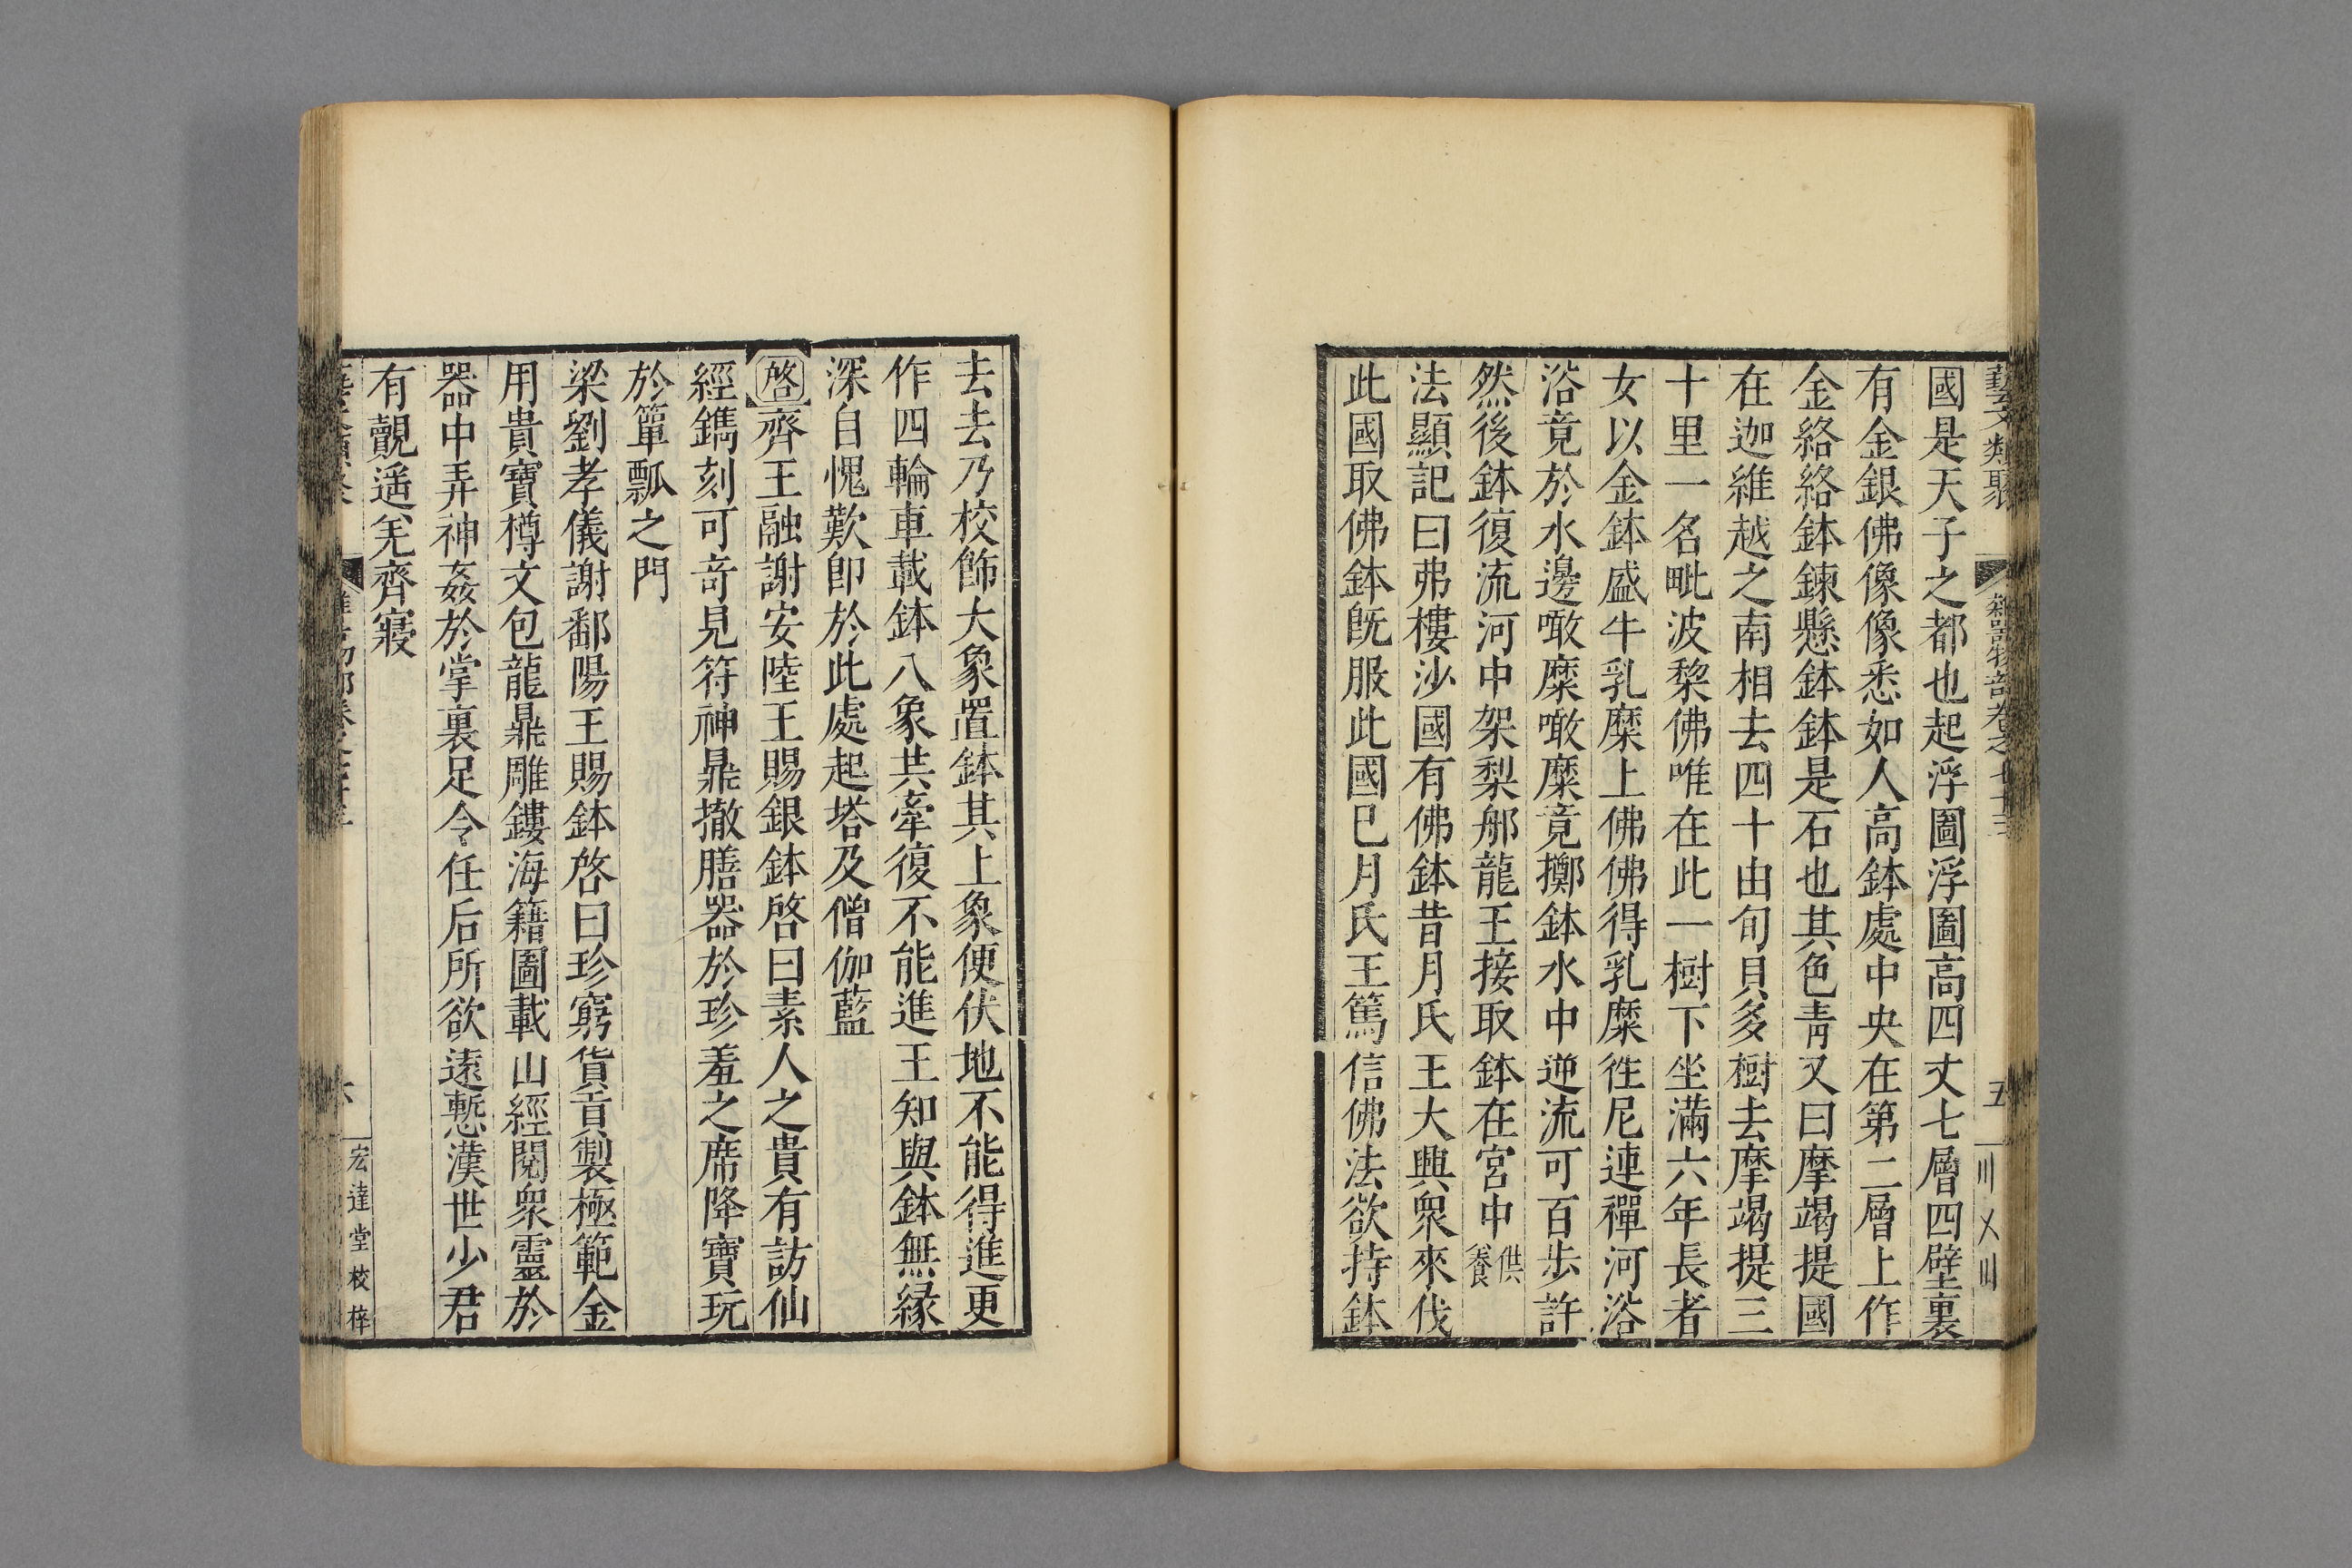 藝文類聚 雜器物部卷之七十三 五
國是天子之都也起浮圖浮圖高四丈七層四壁裏
有金銀佛像像悉如人高鉢處中央在第二層上作
金絡絡鉢鍊懸鉢鉢是石也其色靑又曰摩竭提國
在迦維越之南相去四十由旬貝多樹去摩竭提三
十里一名毗波棃佛唯在此一樹下坐滿六年長者
女以金鉢盛牛乳糜上佛佛得乳糜徃尼連禪河浴
浴竟於水邊噉糜噉糜竟擲鉢水中逆流可百步許
然後鉢復流河中架梨郍龍王接取鉢在宮中供養
法顯記曰弗樓沙國有佛鉢昔月氏王大興衆來伐
此國取佛鉢旣服此國已月氏王篤信佛法欲持鉢
去去乃校飾大象置鉢其上象便伏地不能得進更
作四輪車載鉢八象共牽復不能進王知與鉢無緣
深自愧歎卽於此處起塔及僧伽藍
啓齊王融謝安陸王賜銀鉢啓曰素人之貴有訪仙
經鐫刻可奇見符神鼎撤膳器於珍羞之席降寶玩
於簞瓢之門
梁劉孝儀謝鄱陽王賜鉢啓曰珍窮貨貢製極範金
用貴寶樽文包龍鼎雕鏤海籍圖載山經閱衆靈於
器中弄神姦於掌裏足令任后所欲遠慙漢世少君
有覿遥羌齊寢
宏達堂校梓